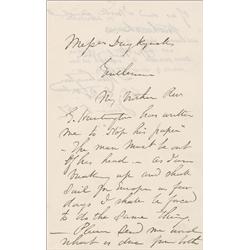 Messrs Duyckinck
Gentlemen
My brother Rev
E. Huntington has written
me to "stop his paper"
- The man must be out
of his head - as I am
making up and shall
sail for Europe in few
days I shall be forced
to do the same thing.
- Please send me word
what is due from both